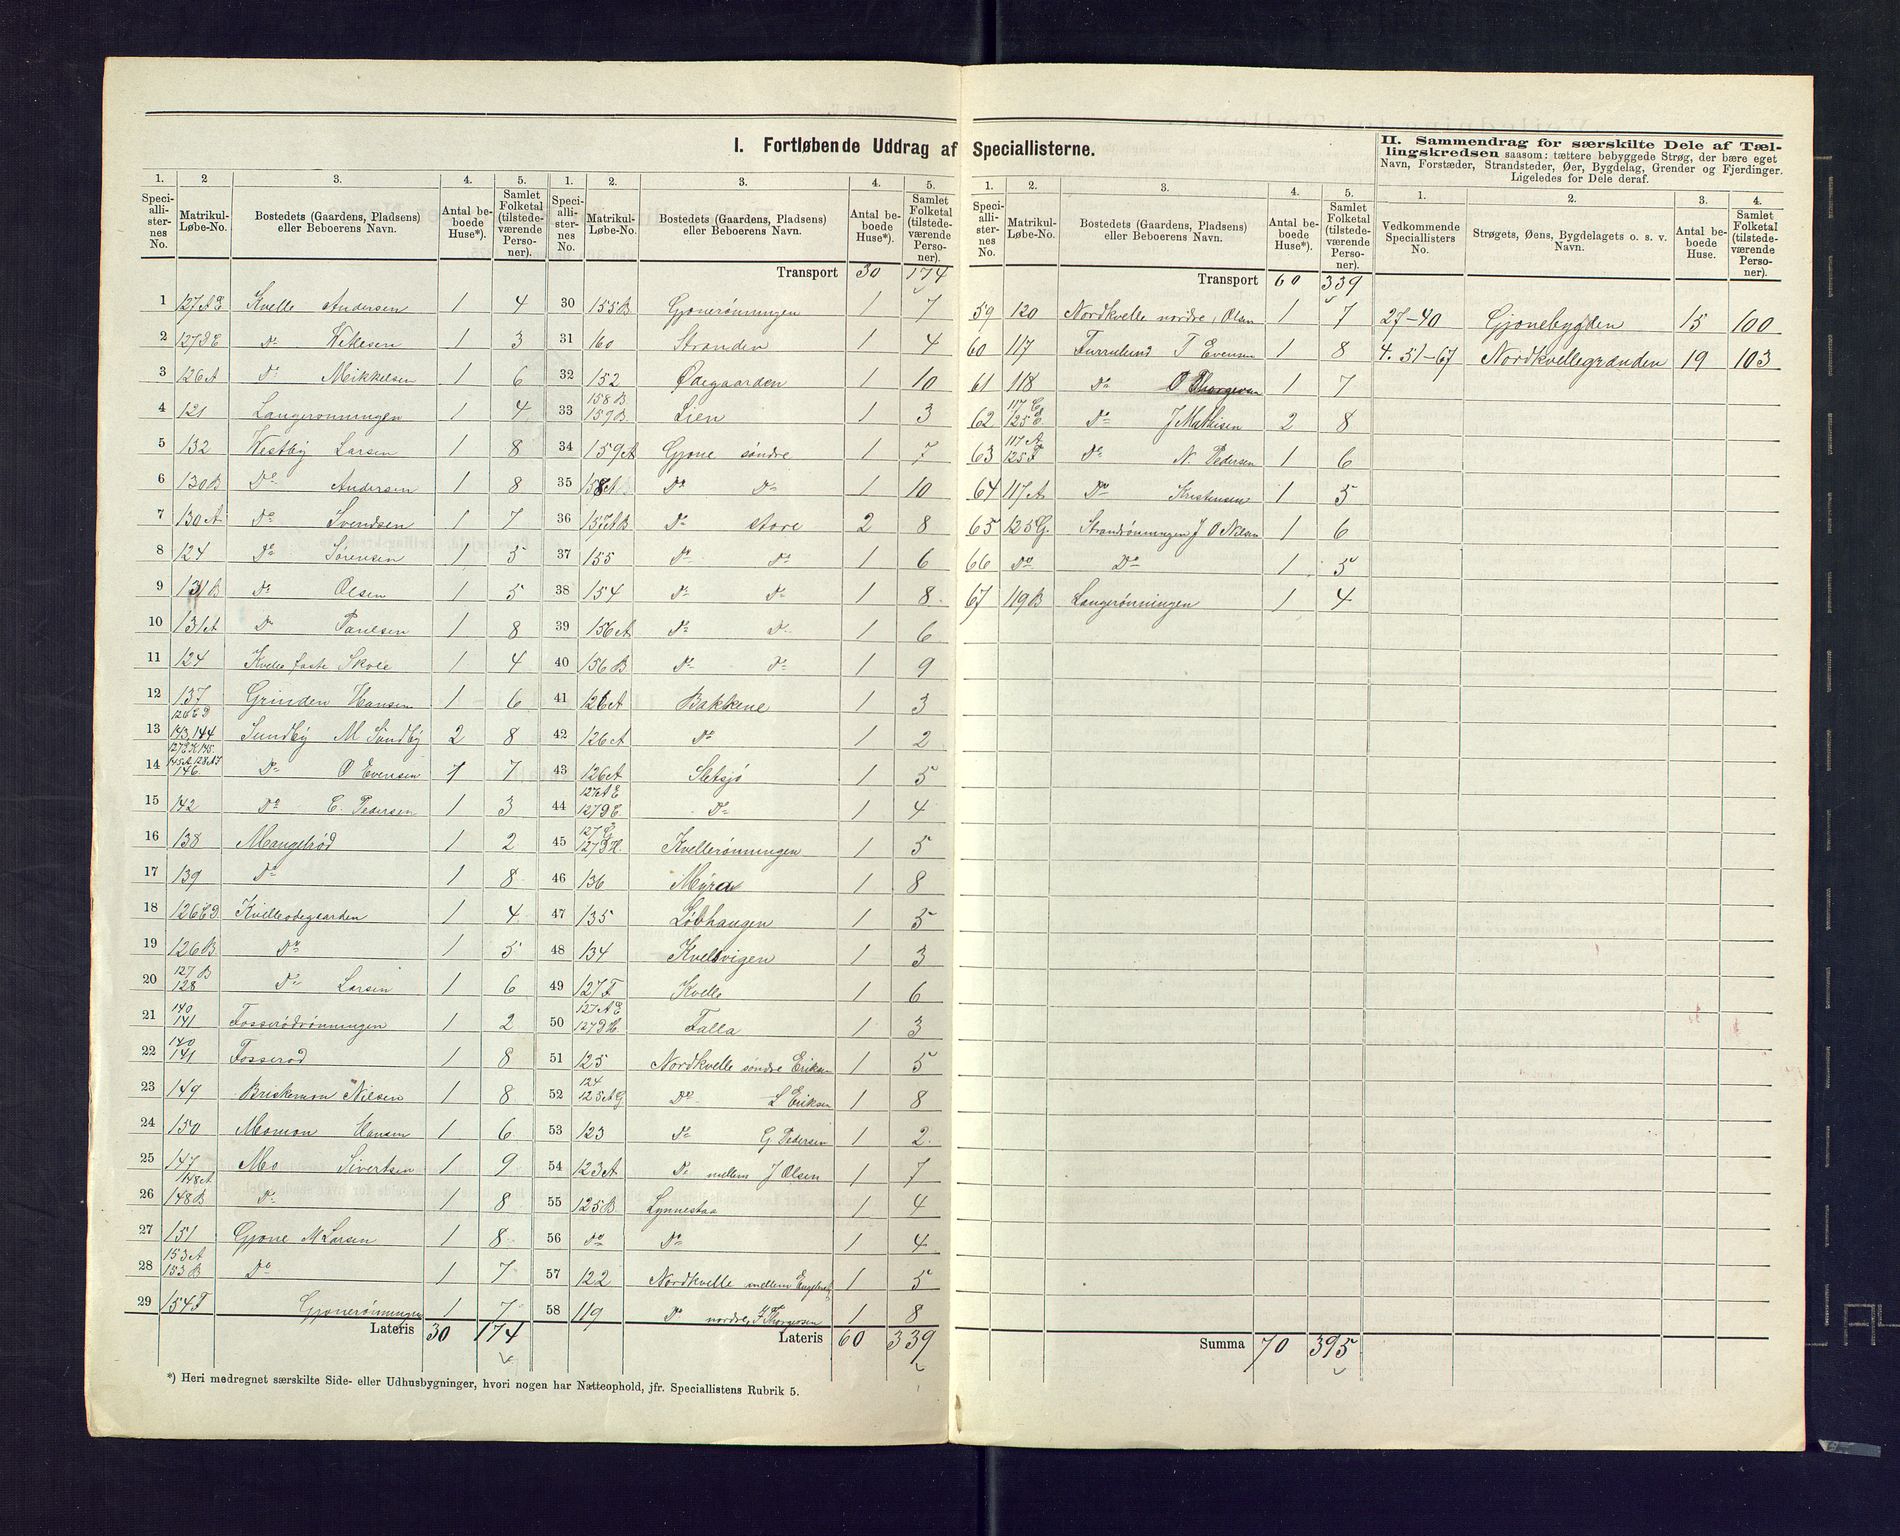 I. Fortløbende Uddrag af Speciallisterne.
II. Sammendrag for særskilte Dele af Tællingskredsen saasom: tættere bebyggede Strøg, der bære eget Navn, Forstæder, Strandsteder, Øer, Bygdelag, Grender og Fjerdinger. Ligeledes for Dele deraf.
1. 2 3. 4. 5. 1. 2. 3. 4. 5. 1. 2. 3. 4. 5. 1. 2. 3. 4.
Speciallisternes No. Matrikul-Løbe-No. Bostedets (Gaardens, Pladsens) eller Beboerens Navn. Antal beboede Huse*). Samlet Folketal (tilstedeværende Personer).
Speciallisternes No. Matrikul-Løbe-No. Bostedets (Gaardens, Pladsens) eller Beboerens Navn. Antal beboede Huse*). Samlet Folketal (tilstedeværende Personer).
Speciallisternes No. Matrikul-Løbe-No. Bostedets (Gaardens, Pladsens) eller Beboerens Navn. Antal beboede Huse*). Samlet Folketal (tilstedeværende Personer).
Vedkommende Speciallisters No. Strøgets, Øens, Bygdelagets o. s. v. Navn. Antal beboede Huse. Samlet Folketal (tilstedeværende Personer).
1 127AE Kvelle Andersen 1 4
2 127DE Do 1 3
3 126A Do Mikkelsen 1 6
4 121 Langerønningen 1 4
5 132 Vestby Larsen 1 8
6 130B Do Andersen 1 8
7 130A Do Svendsen 1 7
8 124 Do Sørensen 1 5
9 131B Do Olsen 1 5
10 131A Do Paulsen 1 8
11 124 Kvelle faste Skole 1 4
12 137 Grinden Hansen 1 6
13 126CD 143,144 Sundby M Sundby 2 8
14 146 Do O Evensen 1 7
15 142 Do C. Pedersen 1 3
16 138 Mangelrød 1 2
17 139 Do 1 8
18 126CD Kvelleødegaarden 1 4
19 126B Do 1 5
20 127B 128 Do Larsen 1 6
21 140 141 Fosserødrønningen 1 2
22 140 141 Fosserød 1 8
23 149 Briskemon Nilsen 1 8
24 150 Momon Hansen 1 6
25 147 Mo Sivertsen 1 9
26 148A 148B Do 1 8
27 151 Gjone M Larsen 1 8
28 153A 153B Do 1 7
29 154F Gjonerønningen 1 7
Lateris 30 174
*) Heri medregnet særskilte Side- eller Udhusbygninger, hvori nogen har Natteophold, jfr. Speciallistens Rubrik 5.
Transport 30 174
30 155B Gjonerønningen 1 7
31 160 Stranden 1 4
32 152 Ødegaarden 1 10
33 158B 159B Lien 1 3
34 159A Gjone søndre 1 7
35 158A Do Do 1 10
36 157AB Do store 2 8
37 155 Do Do 1 6
38 154 Do Do 1 8
39 156A Do Do 1 6
40 156B Do Do 1 9
41 126A Bakkene 1 3
42 126A Do 1 2
43 126A Sletsjø 1 5
44 127AE 127DE Do 1 4
45 127G 127DH. Kvellerønningen 1 5
46 136 Myra 1 8
47 135 Løbhaugen 1 5
48 134 Kvelsvigen 1 3
49 127F Kvelle 1 6
50 127AE 127DH. Falla 1 3
51 125 Nordkvelle søndre Eriksen 1 5
52 124 125AG Do L Eriksen 1 8
53 123 Do G Pedersen 1 2
54 123A Do mellem J Olsen 1 7
55 125B Lynnestaa 1 4
56 Do Do 1 4
57 122 Nordkvelle mellem 1 5
58 119 Do nordre, Thorgersen 1 8
Lateris 60 339
Transport 60 339
59 120 Nordkvelle nordre, Olsen 1 7
60 117 Furrulund T Evensen 1 8
61 118 Do O Thorgersen 1 7
62 117C 125E Do J Mathisen 2 8
63 117A 125F Do N. Pedersen 1 6
64 117A Do Kristensen 1 5
65 125G. Strandrønningen J O Nilsen 1 6
66 Do Do 1 5
67 119B Langerønningen 1 4
Summa 70 395
27-40 Gjonebygden 15 100
4. 51-67 Nordkvellegrænden 19 103